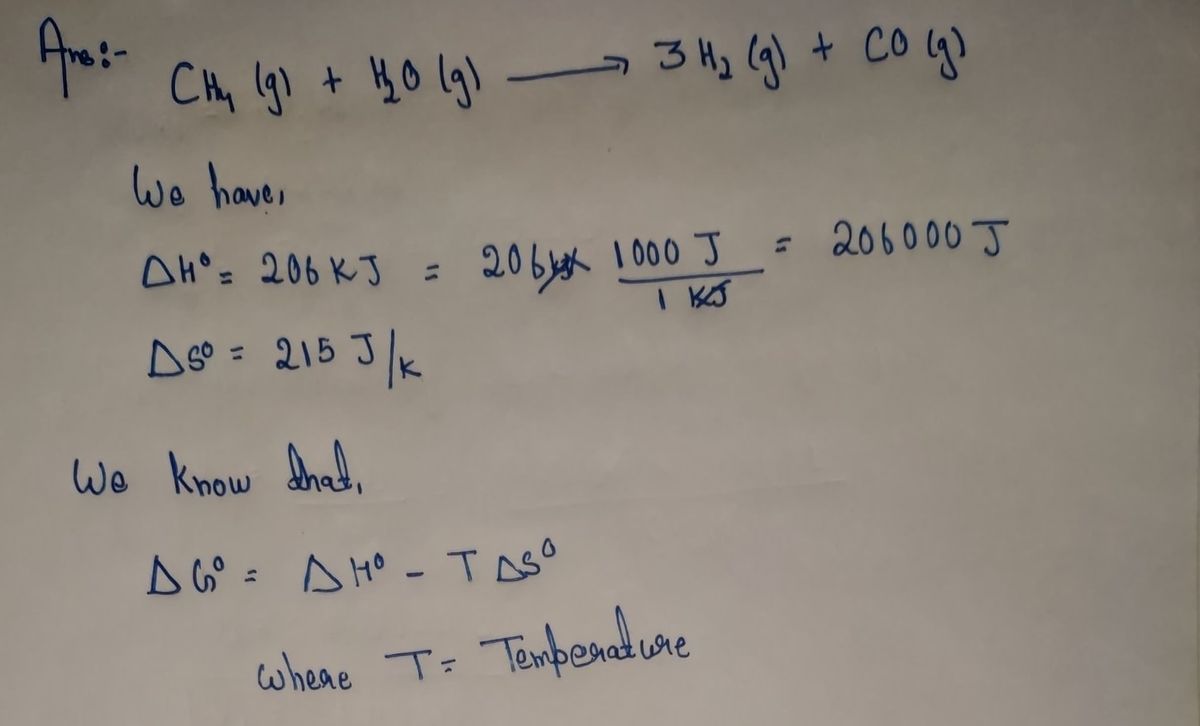 Ans:- CH₄ (g) + H₂O (g) ⟶ 3 H₂ (g) + CO (g)
We have,
ΔH° = 206 KJ = 206 KJ x 1000 J / 1 KJ = 206000 J
ΔS° = 215 J/K
We know that,
ΔG° = ΔH° - T ΔS°
where T = Temperature